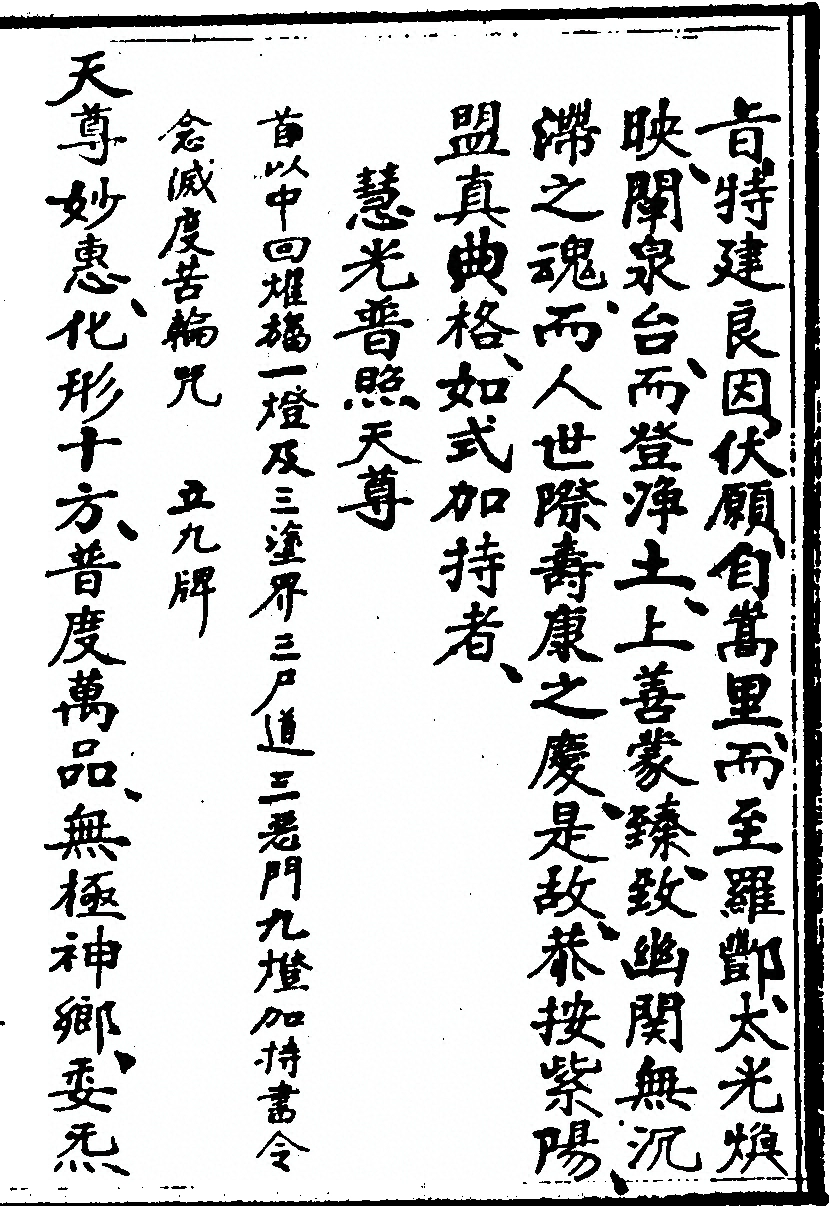 旨、特建良因、伏願、自嵩里、而至羅酆、太光煥
映、闡泉台而、登淨土、上善蒙臻、致幽関無沉
滯之魂、而人世際壽康之慶、是故、恭按紫陽、
盟真典格、如式加持者、
慧光普照天尊
首以中回燿旛一燈及三塗界三尸道三惡門九燈加持書令
念滅度苦輪咒 五九牌
天尊妙惠、化形十方、普度萬品、無極神鄉、委炁